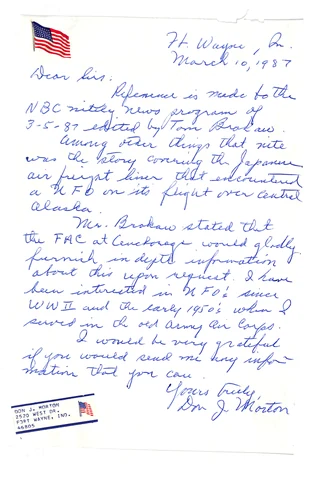 Ft. Wayne, In.
March 10, 1987
Dear Sirs.
Reference is made to the
NBC nitely news program of
3-5-87 edited by Tom Brokaw.
Among other things that nite
was the story covering the Japanese
air freight liner that encountered
a UFO on its flight over central
Alaska.
Mr. Brokaw stated that
the FAC at Anchorage would gladly
furnish in depth information
about this upon request. I have
been interested in UFO's since
WW II and the early 1950's when I
served in the old Army Air Corps.
I would be very grateful
if you would send me any infor-
mation that you can.
Yours truly,
Don J. Morton
DON J. MORTON
2520 WEST DR.
FORT WAYNE, IND.
46805